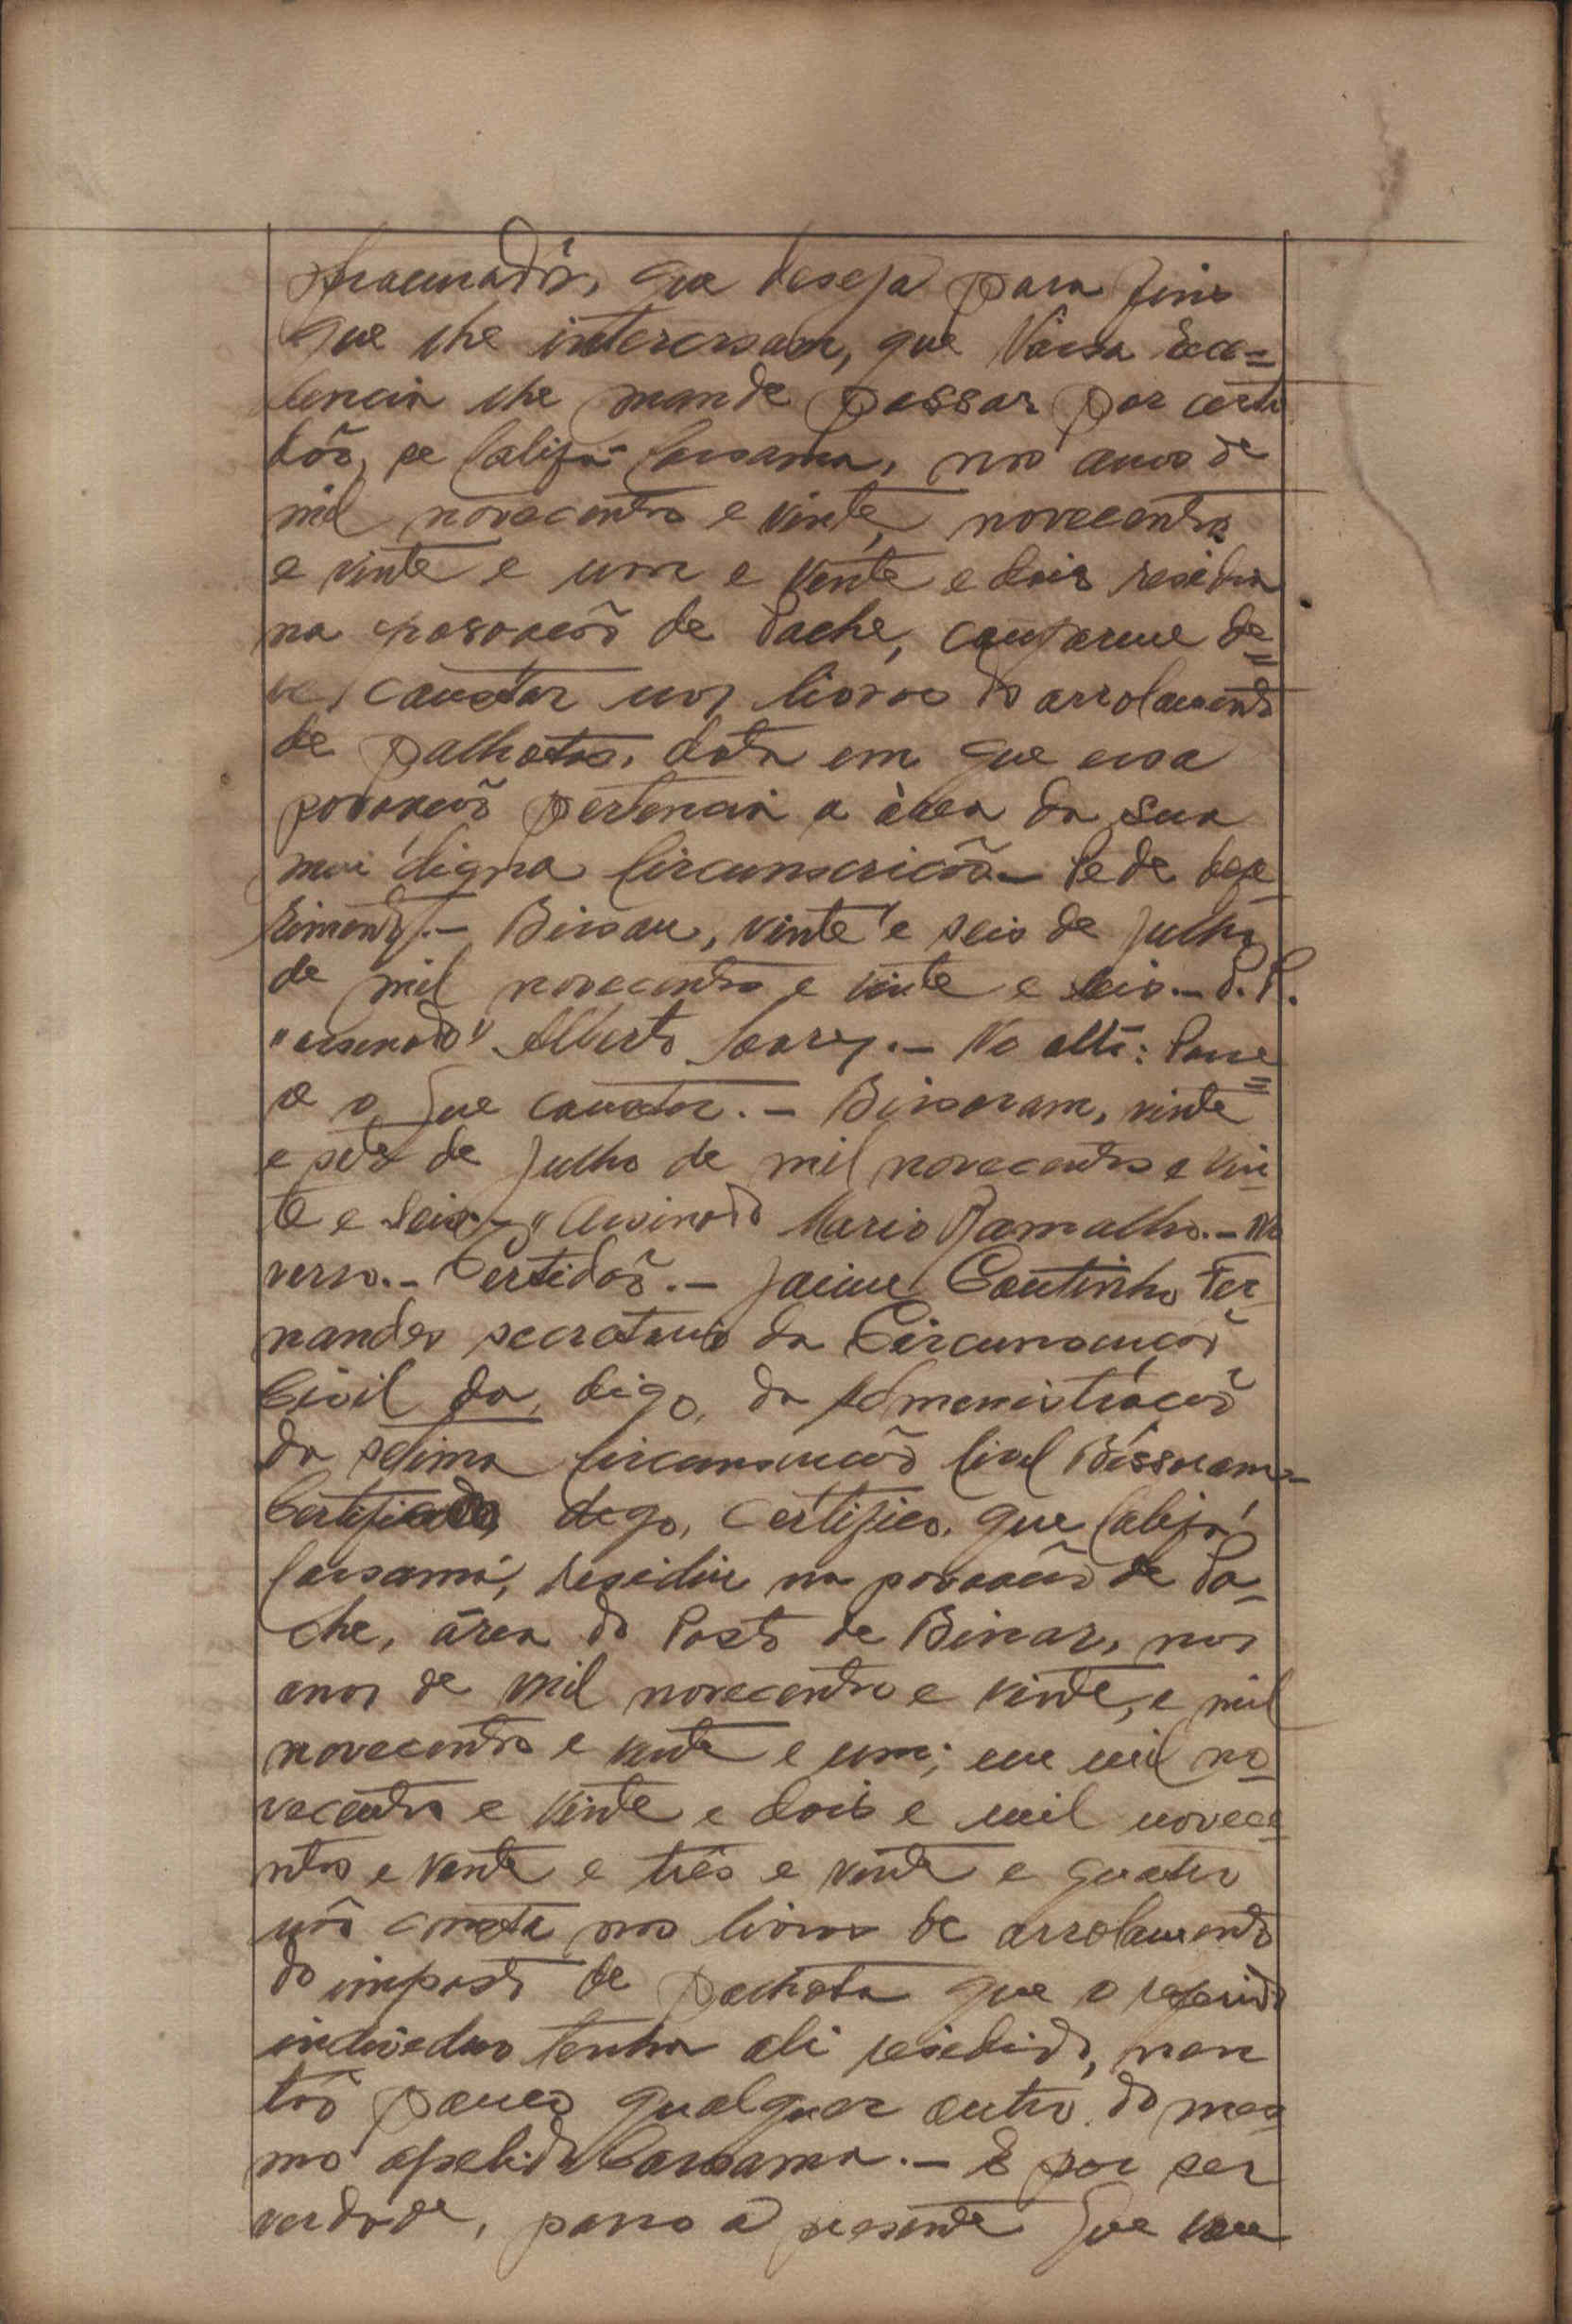 procuradôr, que deseja para fins
que lhe interessam, que Vossa Exce=
lencia lhe mande passar por certi
dão, se Califa Cassama, nos anos de
mil novecentos e vinte, novecentos
e vinte e um e vinte e dois residia
na povoacão de Pache, conforme de=
ve, constar nos livros do arrolamento
de palhotas, data em que essa
povoacão pertencia a àrea da sua
mui digna Circunscricão.- Pede defe
rimento.- Bissau, vinte e seis de julho
de mil novecentos e vinte e seis.- P. P.
"assinado" Alberto Soares.- No alto: Passe=
se o que constar.- Bissoram, vinte
e sete de julho de mil novecentos e vin
te e seis.- "Assinado Mario Ramalho.- No
verso.- Certidão.- Jaime Coutinho Fer
nandes secretario da Circunscriçaõ
Civil da, digo, da Admenistracão
da sétima circunscricão Civil Bissoram-
Certificado, digo, certifico, que Califá
Cassamá, residiu na povoacão de Pa-
che, área do Posto de Binar, nos
anos de mil novecentos e vinte, e mil
novecentos e vinte e um; em mil no
vecentos e vinte e dois e mil novece
ntos e vinte e três e vinte e quatro
não consta nos livros de arrolamento
do imposto de palhota que o referido
individuo tenha ali residido, nem
tão pouco qualquer outro do mes
mo apelido Cassama.- E por ser
verdade, passo a presente que vae